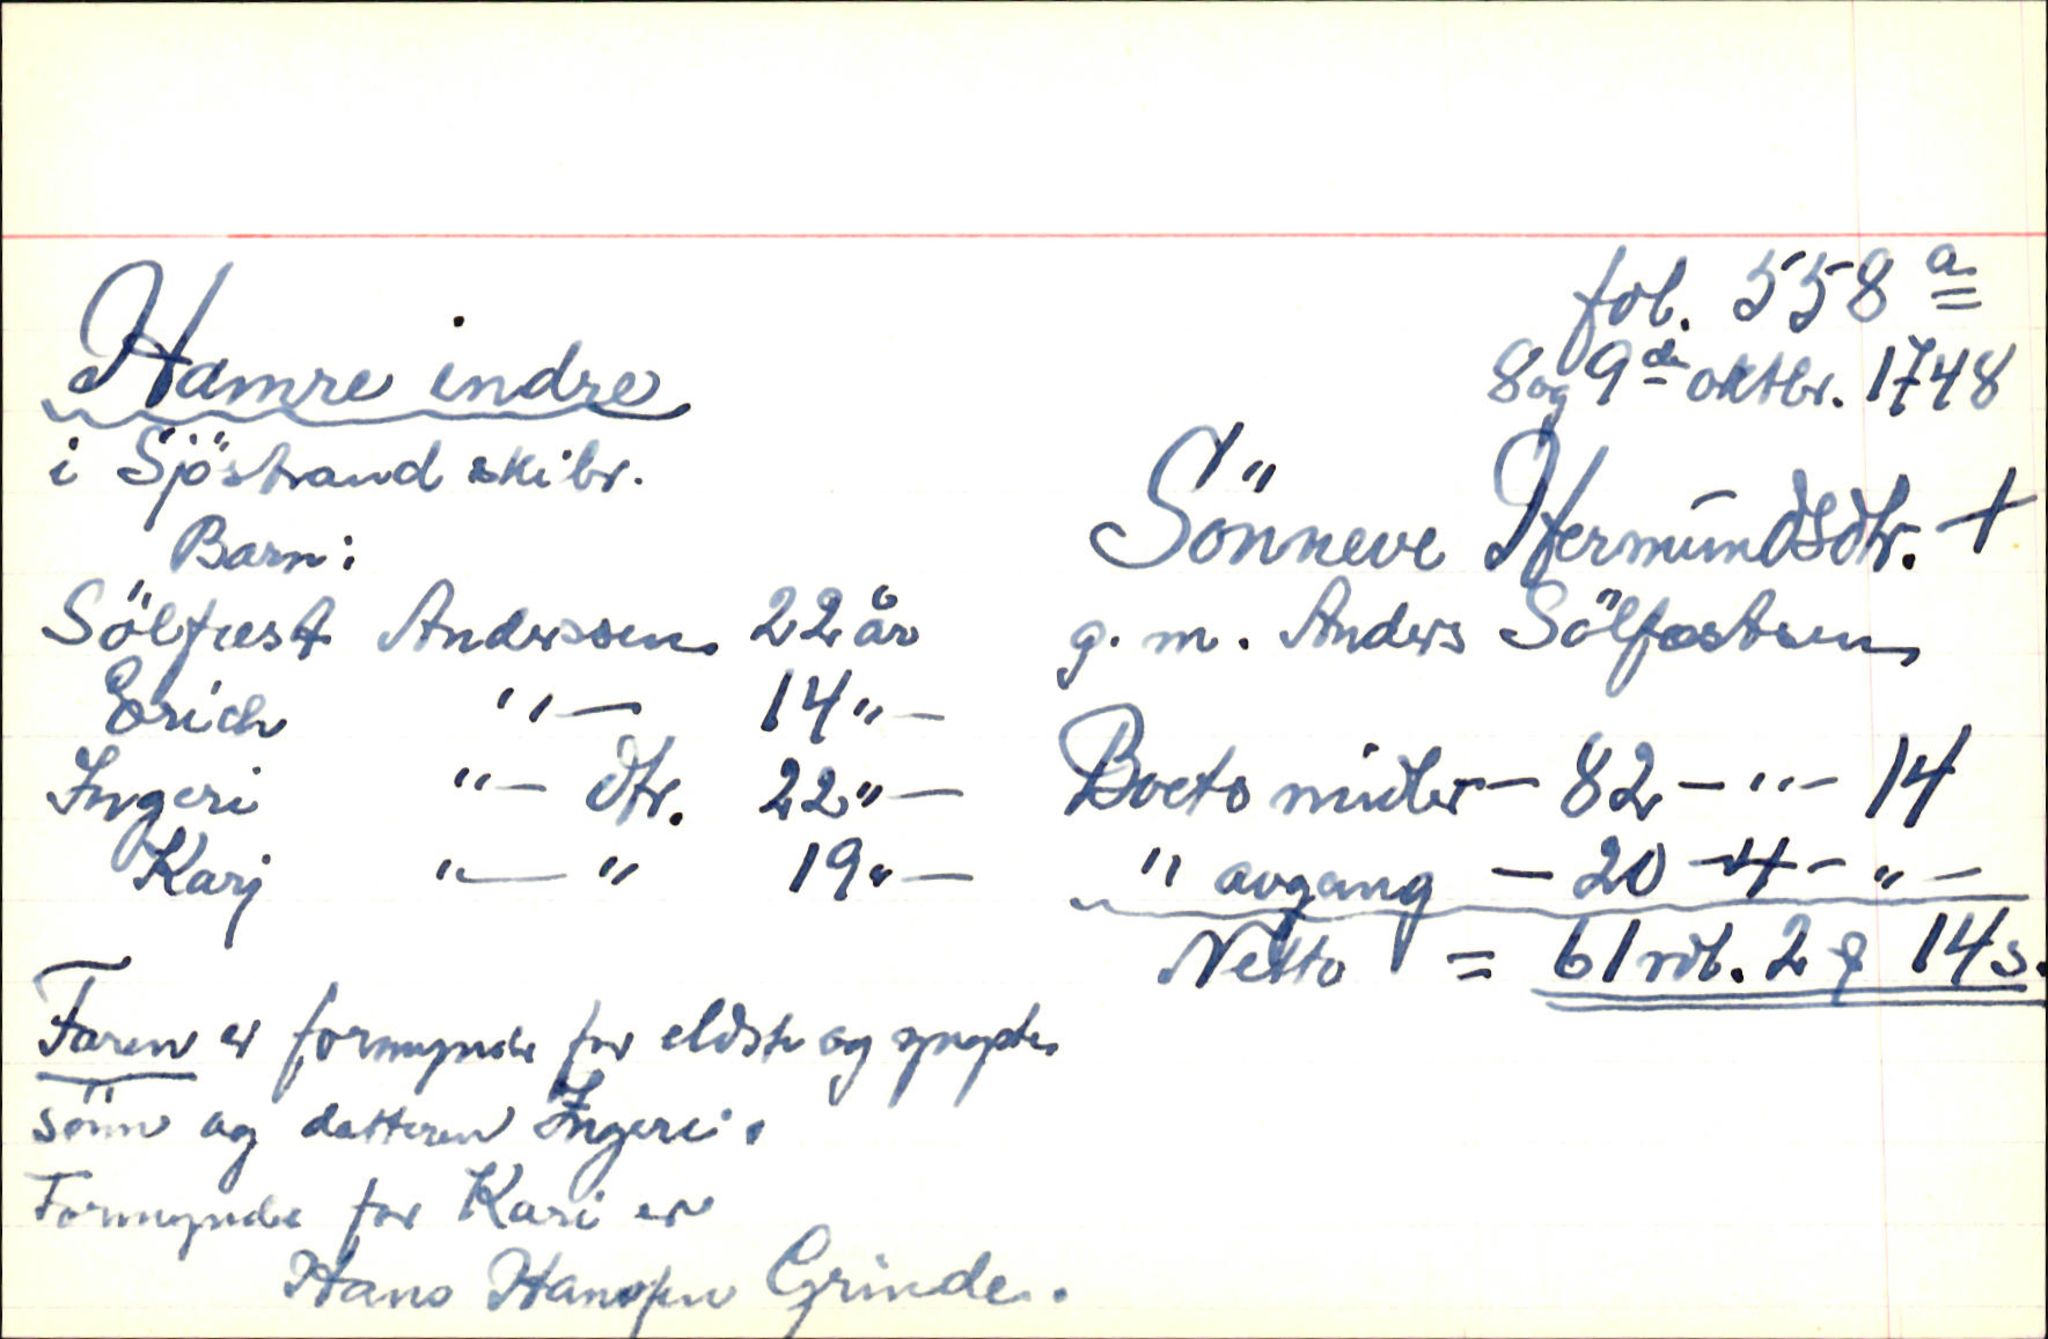 fol. 558 a
8 og 9de oktbr. 1748
Hamre indre
i Sjöstrand skibr.
Sönneve Hermundsdtr. +
g. m. Anders Sölfæstsen
Barn:
Sölfæst Anderssen 22 år
Erich "— 14 "—
Ingeri "— dtr. 22 "—
Karj "— " 19 "—
Boets midler — 82 — " — 14
" avgang — 20 — 4 — " —
Netto = 61 rdl. 2 ℘ 14 s.
Faren er formynder for eldste og yngste
sönn og datteren Ingeri.
Formynder for Kari er
Hans Hanssen Grinde.